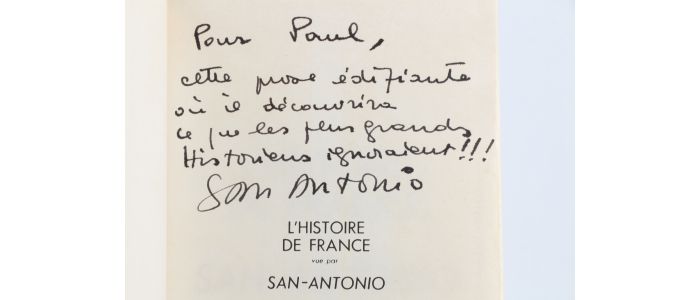 Pour Paul,
cette prose édifiante
où il découvrira
ce que les plus grands
Historiens ignoraient!!!
San Antonio
L'HISTOIRE
DE FRANCE
vue par
SAN-ANTONIO